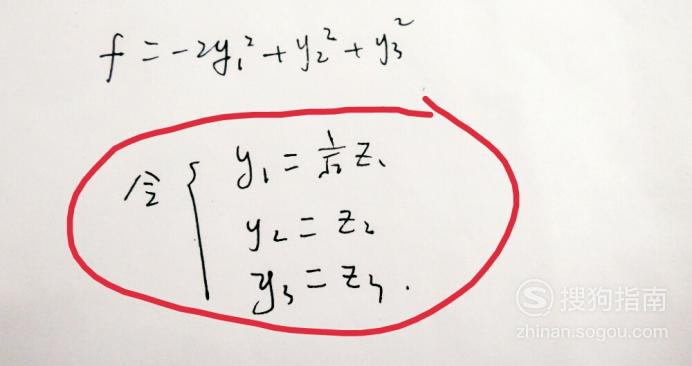 f = -2y₁² + y₂² + y₃²
令 { y₁ = 1/√2 z₁
y₂ = z₂
y₃ = z₃.
搜狗指南
zhinan.sogou.com